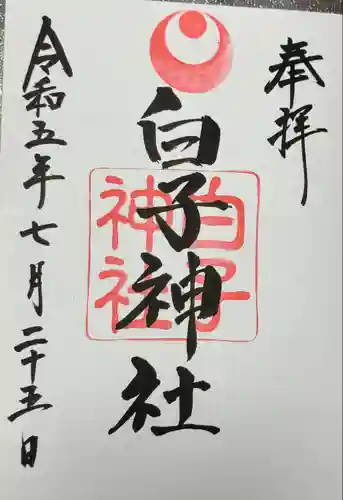 奉拝
白子神社
白子
神社
令和五年七月二十五日